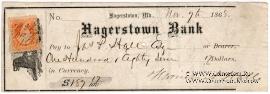 Hagerstown, Md., Nov. 9th 1868
No.
Hagerstown Bank
Pay to Hall or Bearer,
One Hundred & Eighty Seven Dollars,
in Currency.
$187